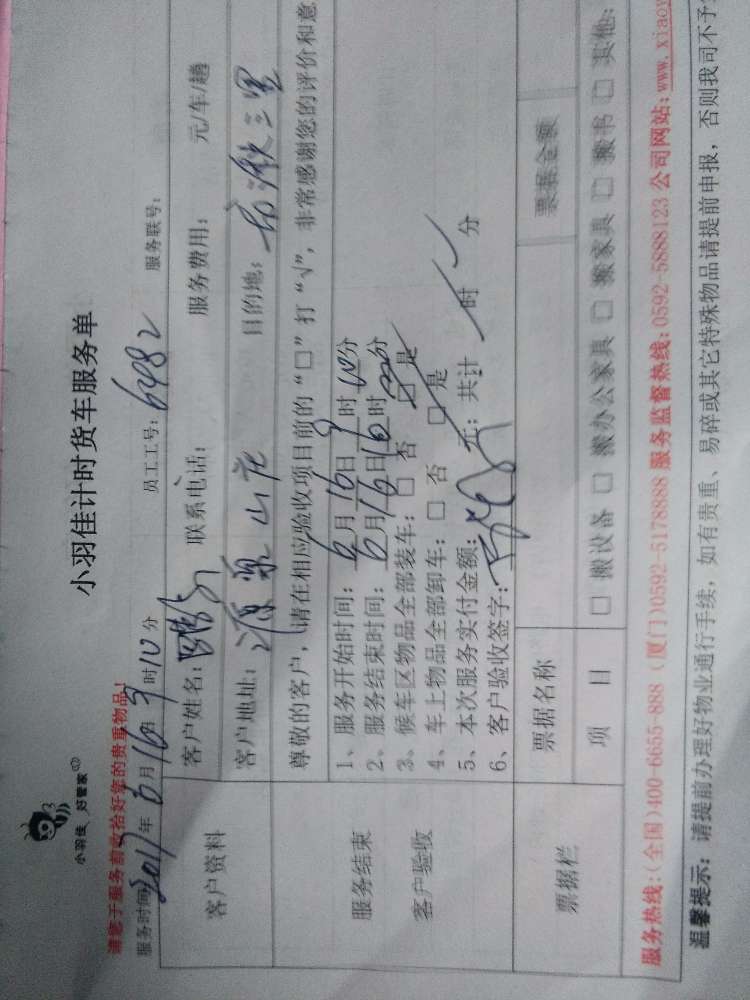 小羽佳 好管家
小羽佳计时货车服务单
请您于服务前收拾好您的贵重物品!
服务时间 2017年6月16日9时10分 员工工号: 6982 服务联号:
客户资料
客户姓名: 联系电话: 服务费用: 元/车/趟
客户地址: 源泉山庄 目的地: 三里
尊敬的客户,请在相应验收项目前的“□”打“√”,非常感谢您的评价和意
服务结束
客户验收
1、服务开始时间: 6月16日9时10分
2、服务结束时间: 6月16日 时 分
3、候车区物品全部装车: □ 否 □ 是
4、车上物品全部卸车: □ 否 □ 是
5、本次服务实付金额: 元; 共计 时 分
6、客户验收签字:
票据栏
票据名称 票据金额
项 目 □ 搬设备 □ 搬办公家具 □ 搬家具 □ 搬书 □ 其他:
服务热线:(全国)400-6655-888 (厦门)0592-5178888 服务监督热线:0592-5888123 公司网站:www.xiaoy
温馨提示: 请提前办理好物业通行手续, 如有贵重、易碎或其它特殊物品请提前申报, 否则我司不予